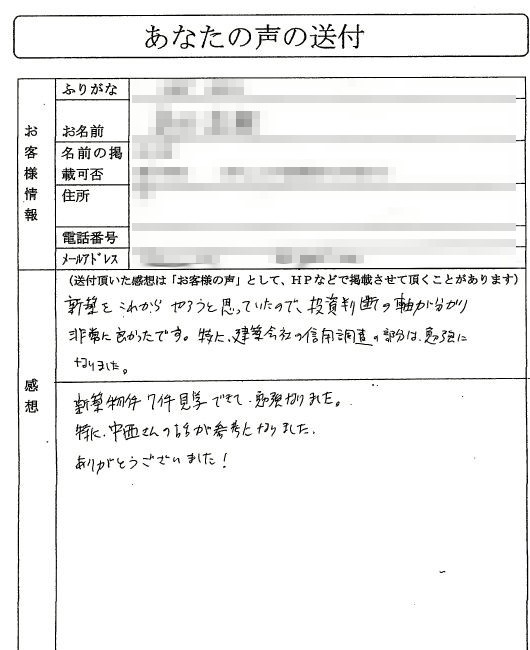 あなたの声の送付
お客様情報
ふりがな
お名前
名前の掲
載可否
住所
電話番号
メールアドレス
感想
(送付頂いた感想は「お客様の声」として、HPなどで掲載させて頂くことがあります)
新築をこれからやろうと思っていたので、投資判断の軸が分かり
非常に良かったです。特に、建築会社の信用調査の部分は、勉強に
なりました。
新築物件7件見学できて、勉強なりました。
特に、中西さんの話が参考となりました。
ありがとうございました!